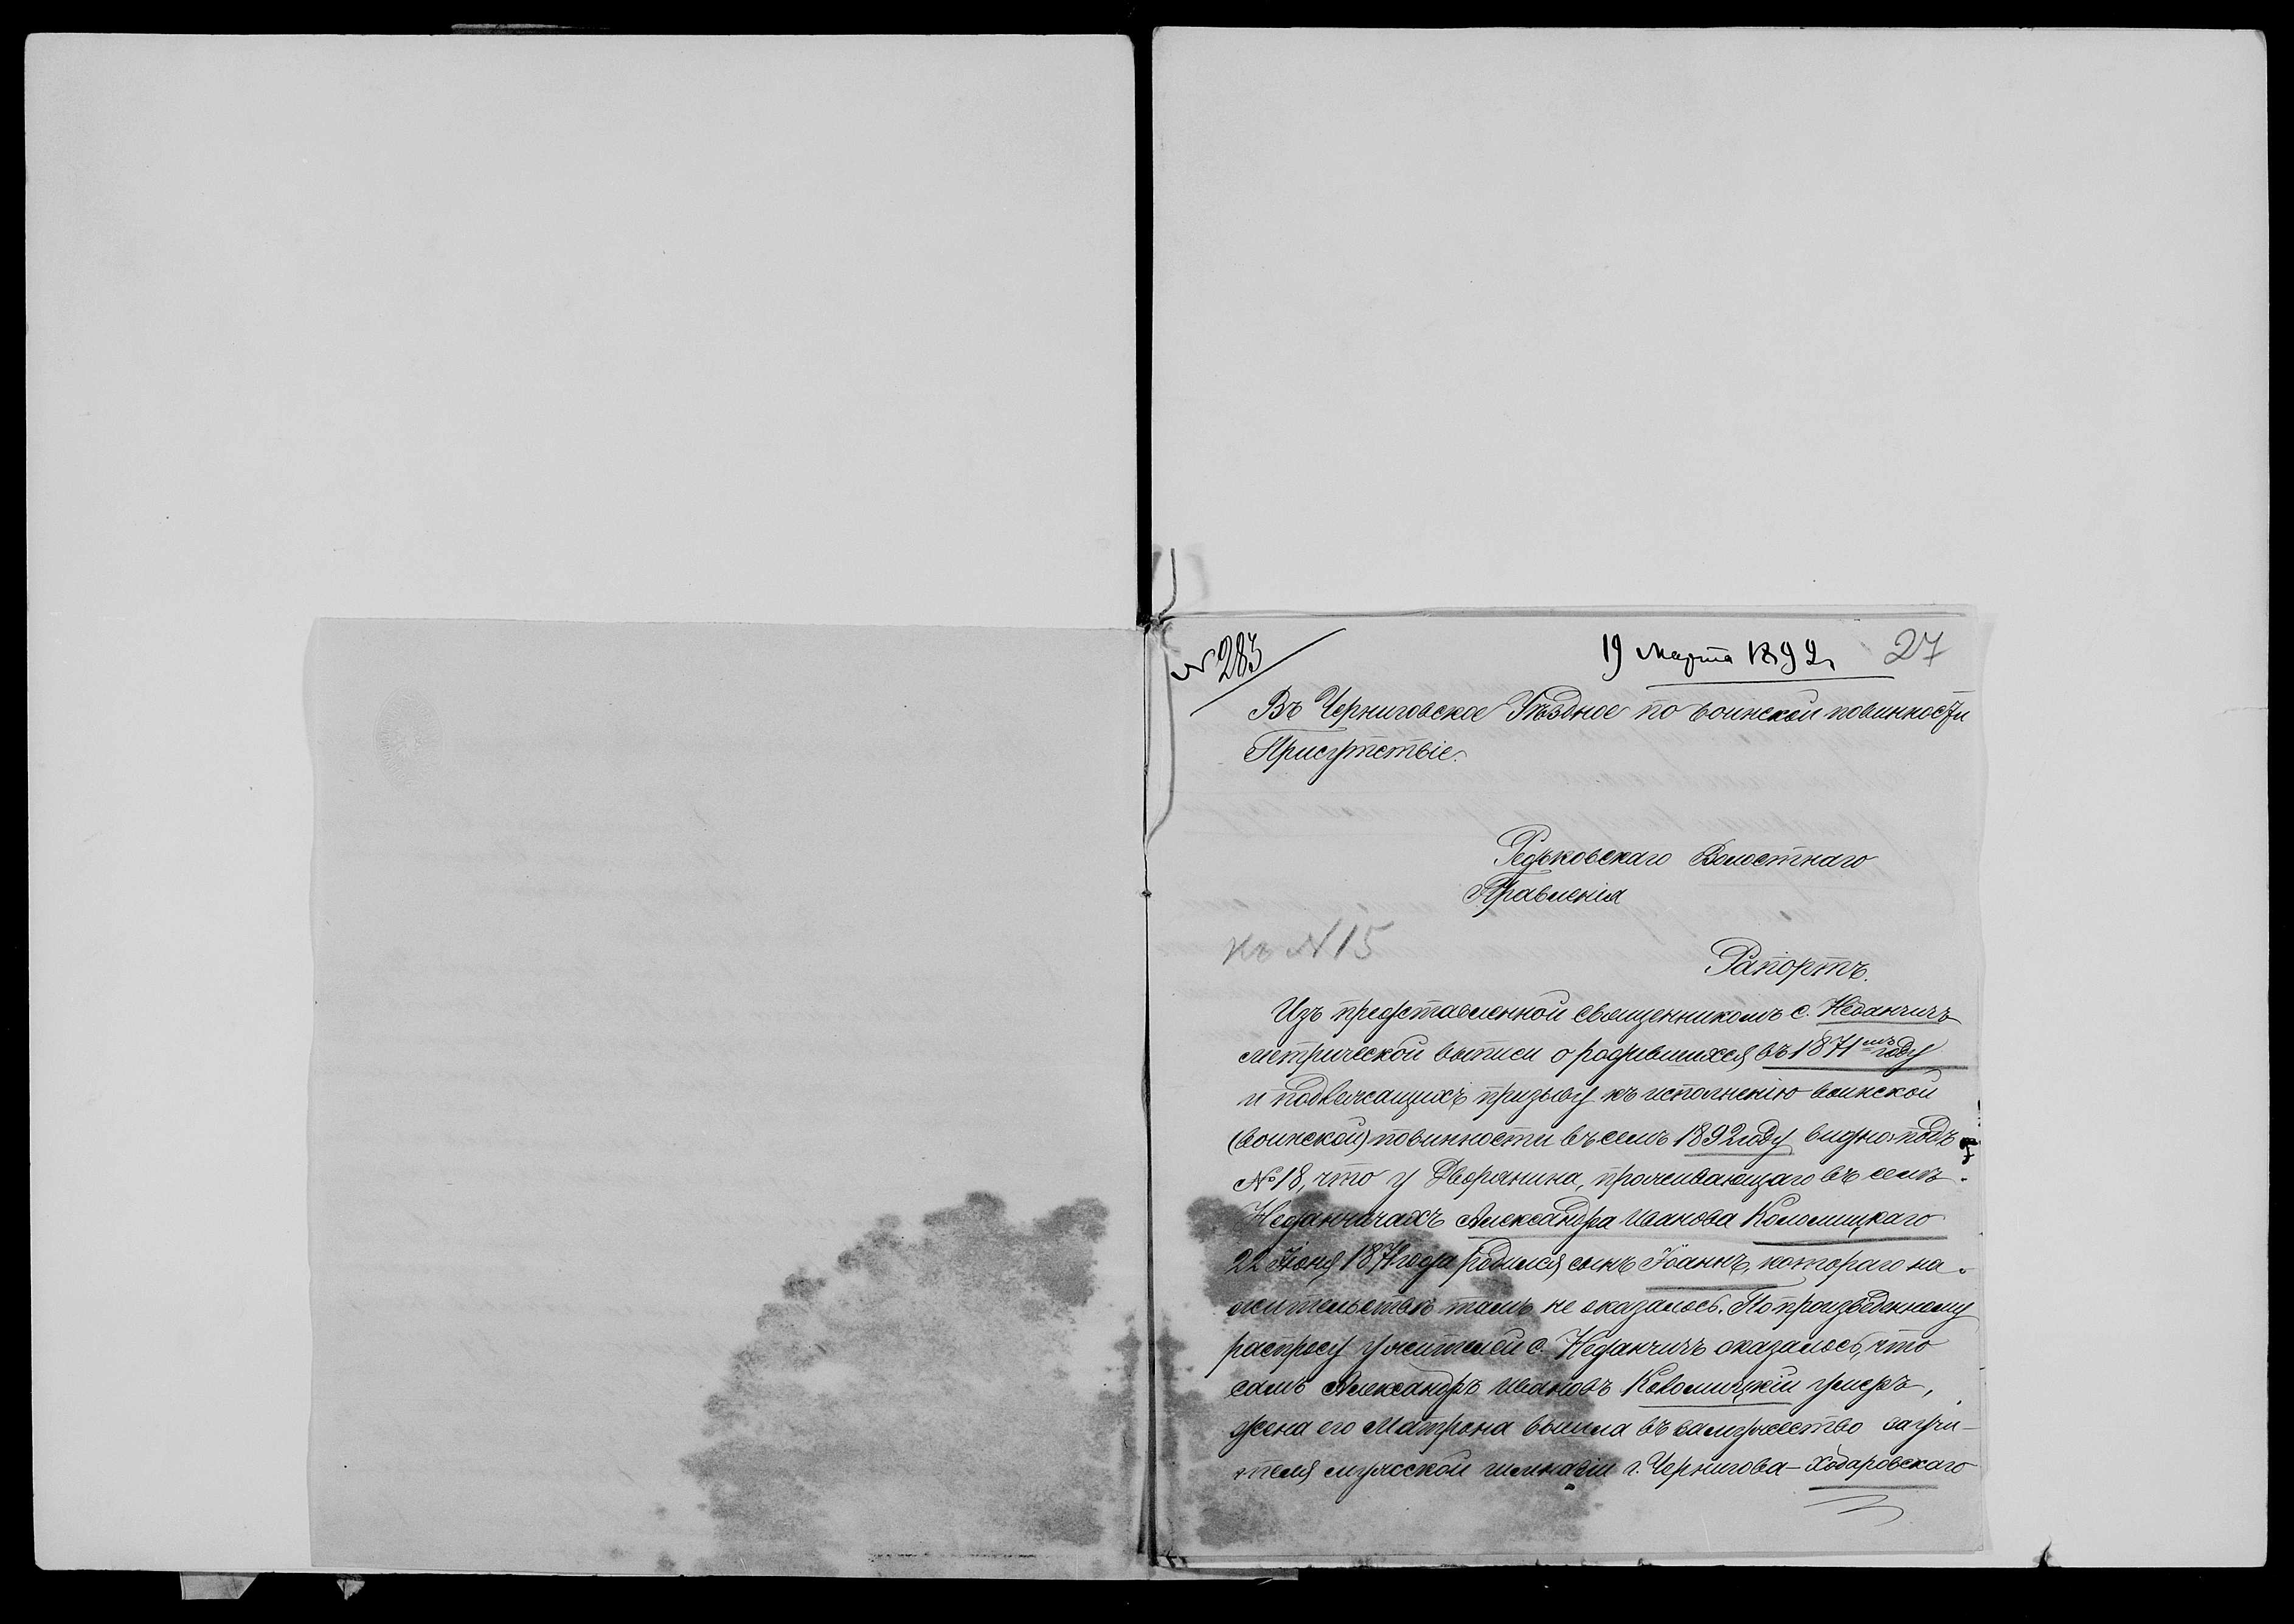 № 283
19 Марта 1892 г.
27
Въ Черниговское Уѣздное по воинской повинности
Присутствіе.
Редьковскаго Волостнаго
Правленія
Къ № 15
Рапортъ.
Изъ представленной священникомъ с. Неданчичъ
метрической выписи о родившихся въ 1871мъ году
и подлежащихъ призыву къ исполненію воинской
(воинской) повинности въ семъ 1892 году видно подъ
№ 18, что у Дворянина, проживающаго въ селѣ
Неданчичахъ Александра Иванова Коломицкаго
22 Іюня 1871 года родился сынъ Іоаннъ, котораго на
жительствѣ тамъ не оказалось. По произведенному
распросу у жителей с. Неданчичъ оказалось, что
самъ Александръ Ивановъ Коломицкій умеръ,
жена его Матрона вышла въ замужество за учи-
теля мужской гимназіи г. Чернигова - Ходаровскаго